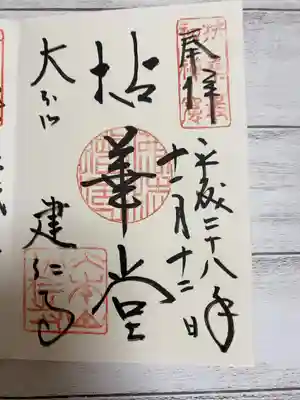 奉拝
平成二十八年
十二月十二日
拈華堂
大本山
建仁寺